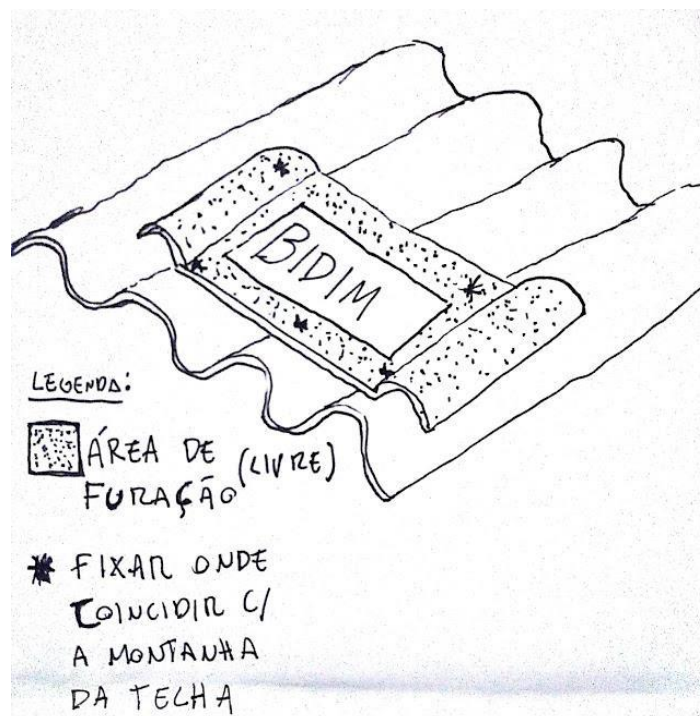 BIDIM
LEGENDA:
ÁREA DE (LIVRE)
FURAÇÃO
* FIXAR ONDE
COINCIDIR C/
A MONTANHA
DA TELHA